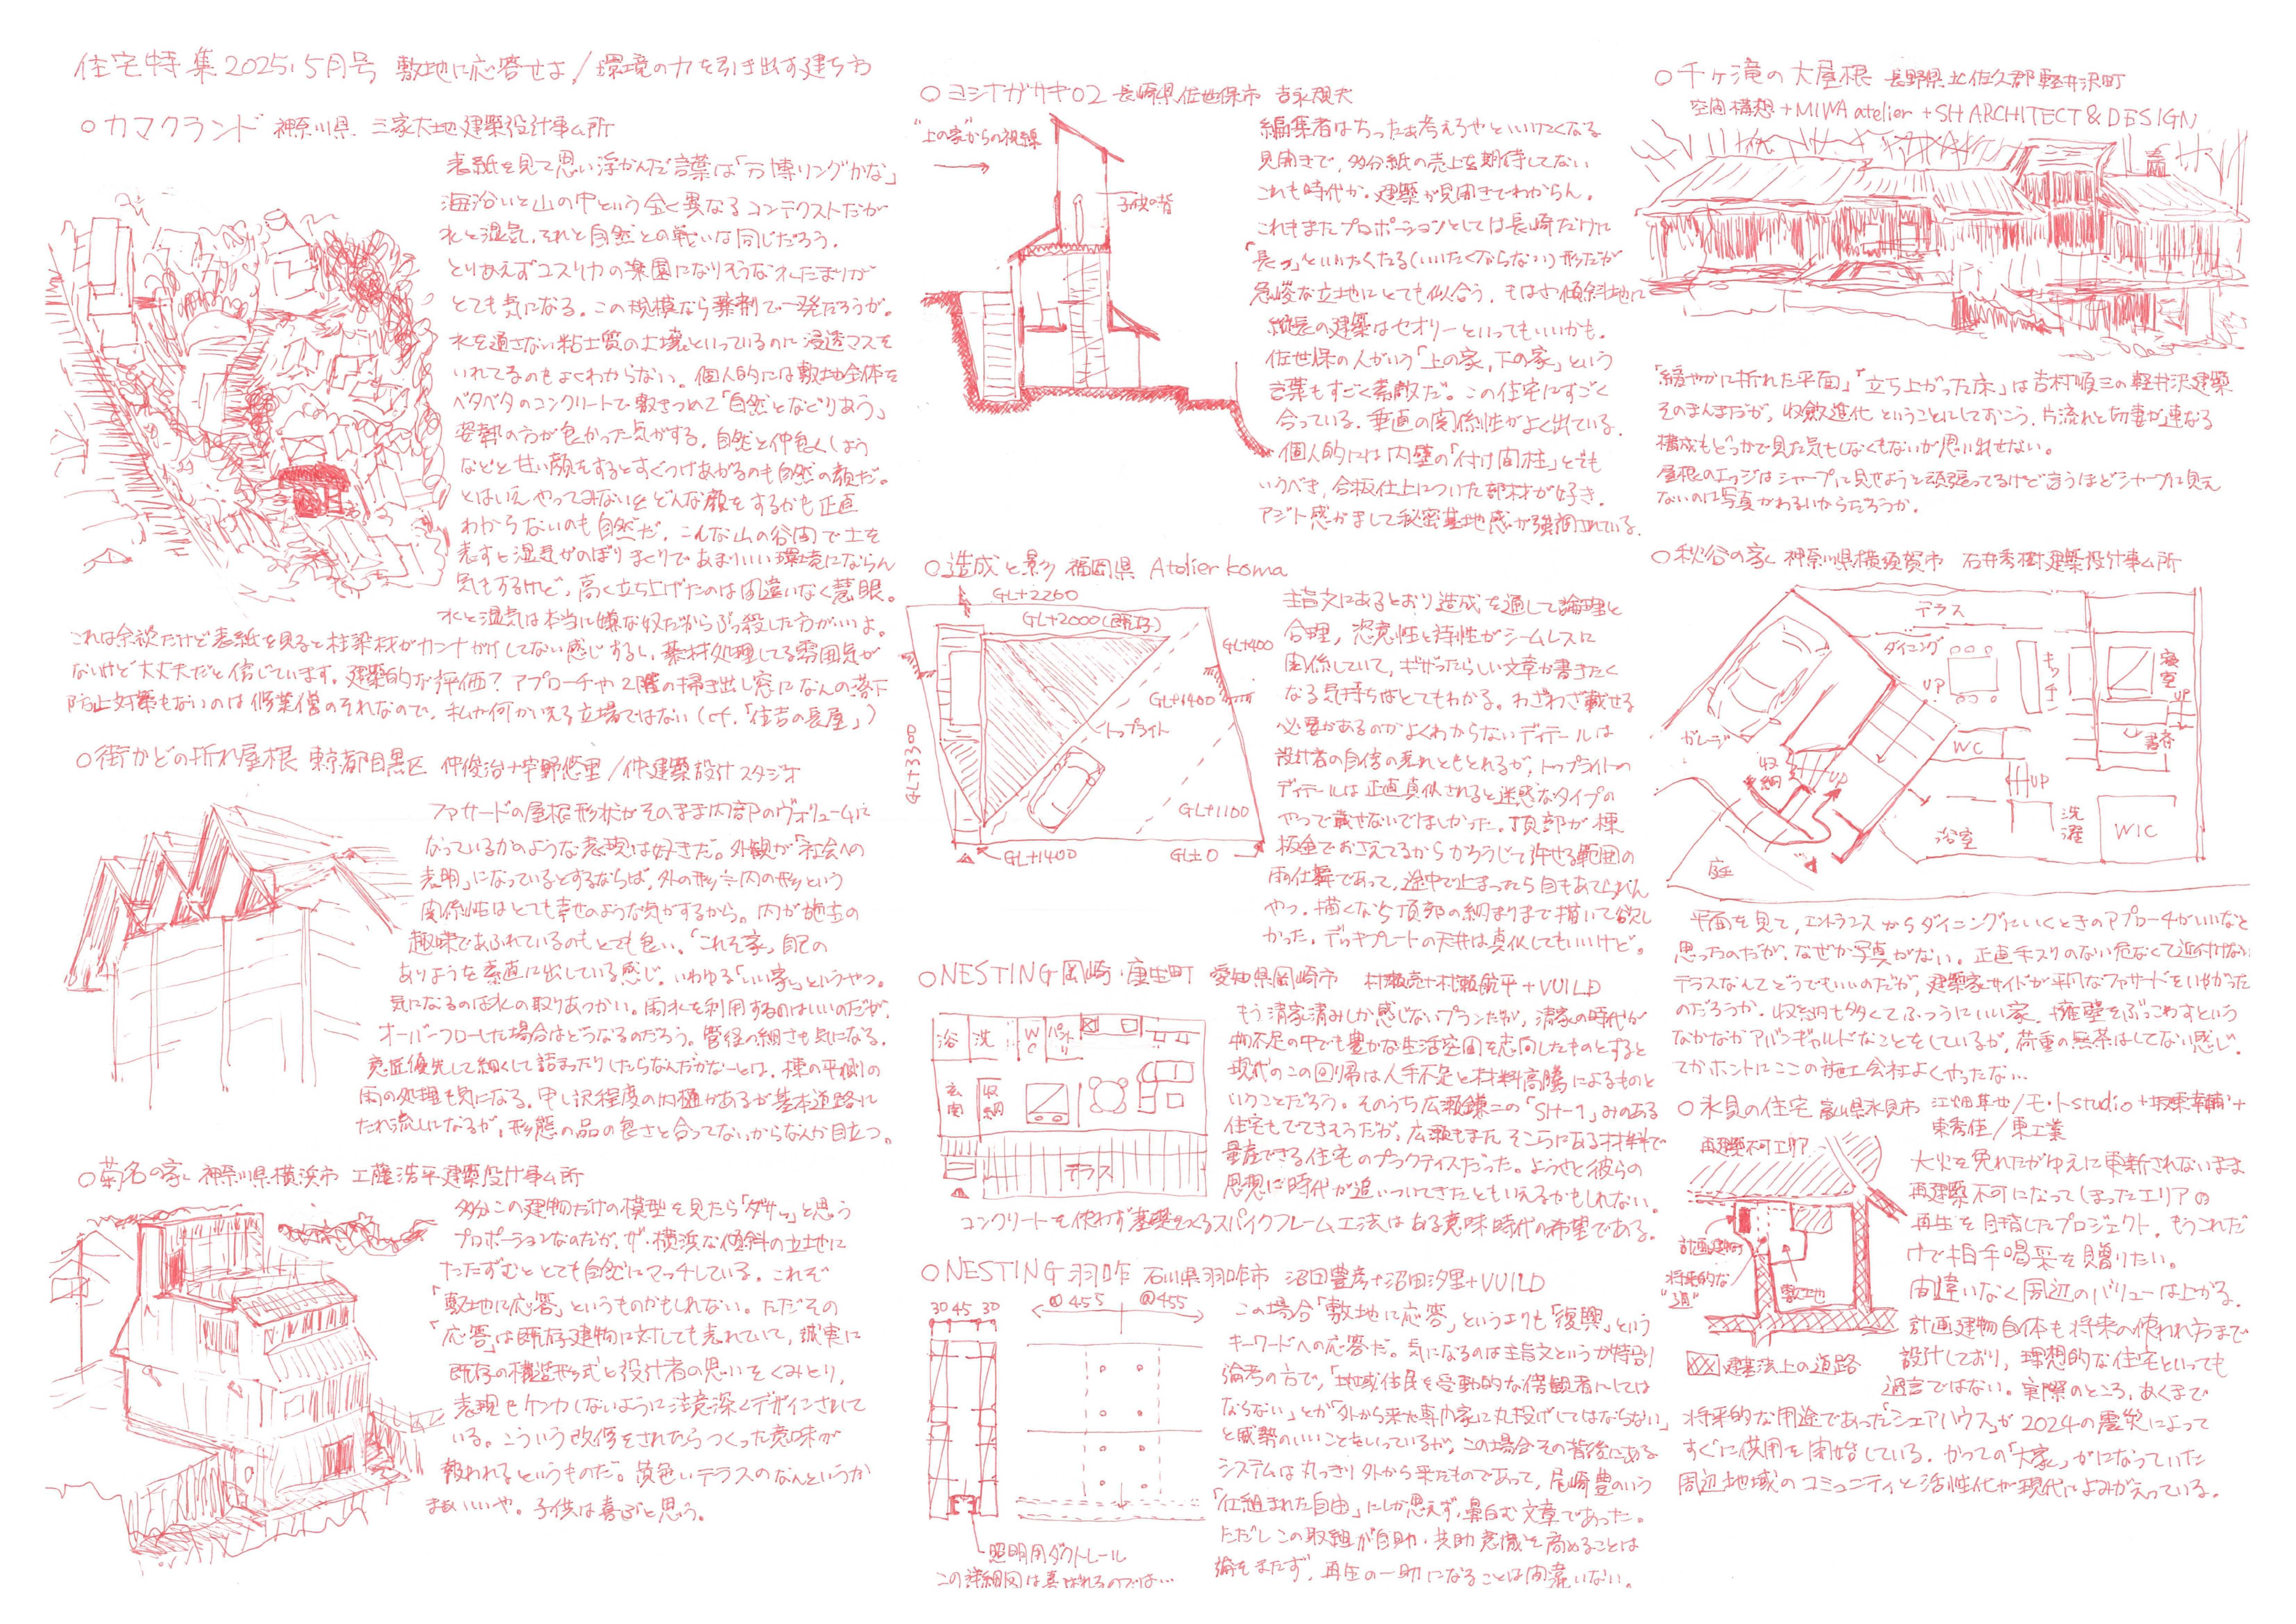 住宅特集2025.5月号 敷地に応答せよ／環境の力を引き出す建ち方
○カマクランド 神奈川県 三家大地建築設計事ム所
表紙を見て思い浮かんだ言葉は「万博リングかな」
海沿いと山の中という全く異なるコンテクストだが
水と湿気、それと自然との戦いは同じだろう。
とりあえずユスリカの楽園になりそうな水たまりが
とても気になる。この規模なら薬剤で一発だろうが。
水を通さない粘土質の土壌といっているのに浸透マスを
いれてるのもよくわからない。個人的には敷地全体を
ベタベタのコンクリートで敷きつめて「自然となぐりあう」
姿勢の方が良かった気がする。自然と仲良くしよう
などと甘い顔をするとすぐつけあがるのも自然の顔だ。
とはいえやってみないとどんな顔をするかも正直
わからないのも自然だ。こんな山の谷間で土を
表すと湿気がのぼりまくりであまりいい環境にならん
気もするけど、高く立ち上げたのは間違いなく慧眼。
水と湿気は本当に嫌な奴だからぶっ殺した方がいいよ。
これは余談だけど表紙を見ると柱梁材がカンナがけしてない感じするし、薬材処理してる雰囲気が
ないけど大丈夫だと信じています。建築的な評価？アプローチや2階の掃き出し窓になんの落下
防止対策もないのは修業僧のそれなので、私が何かいえる立場ではない（cf.「住吉の長屋」）
○街かどの折れ屋根 東京都目黒区 仲俊治+宇野悠里／仲建築設計スタジオ
ファサードの屋根形状がそのまま内部のヴォリュームに
なっているかのような表現は好きだ。外観が「社会への
表明」になっているとするならば、外の形≒内の形という
関係性はとても幸せのような気がするから。内が施主の
趣味であふれているのもとても良い。「これぞ家」自己の
ありようを素直に出している感じ。いわゆる「いい家」というやつ。
気になるのは水の取りあつかい。雨水を利用するのはいいのだが、
オーバーフローした場合はどうなるのだろう。管径の細さも気になる。
意匠優先して細くして詰まったりしたらなんだかなーとは。棟の平側の
雨の処理も気になる。申し訳程度の内樋があるが基本道路に
たれ流しになるが、形態の品の良さと合ってないからなんか目立つ。
○菊名の家 神奈川県横浜市 工藤浩平建築設計事ム所
多分この建物だけの模型を見たら「ダサッ」と思う
プロポーションなのだが、ザ・横浜な傾斜の立地に
たたずむととても自然にマッチしている。これぞ
「敷地に応答」というものかもしれない。ただその
「応答」は既存建物に対しても表れていて、誠実に
既存の構造形式と設計者の思いをくみとり、
表現もケンカしないように注意深くデザインされて
いる。こういう改修をされたらつくった意味が
報われるというものだ。黄色いテラスのなんというか
まあいいや。子供は喜ぶと思う。
○ヨシナガサキ02 長崎県佐世保市 吉永規夫
“上の家”からの視線
子供の背
編集者はちったぁ考えろやといいたくなる
見開きで、多分紙の売上を期待してない
これも時代か。建築が見開きでわからん。
これもまたプロポーションとしては長崎だけに
「長っ」といいたくなる（いいたくならない）形だが
急峻な立地にとても似合う。もはや傾斜地に
縦長の建築はセオリーといってもいいかも。
佐世保の人がいう「上の家、下の家」という
言葉もすごく素敵だ。この住宅にすごく
合っている。垂直の関係性がよく出ている。
個人的には内壁の「付け間柱」とでも
いうべき、合板仕上についた部材が好き。
アジト感がまして秘密基地感が強調されている。
○造成と影 福岡県 Atelier Koma
GL+2260
GL+2000(既存)
GL+400
GL+1400
トップライト
GL+3300
GL+1100
GL+1400
GL±0
主旨文にあるとおり造成を通して論理と
合理、恣意性と特性がシームレスに
関係していて、キザったらしい文章が書きたく
なる気持ちはとてもわかる。わざわざ載せる
必要があるのかよくわからないディテールは
設計者の自信の表れともとれるが、トップライトの
ディテールは正直真似されると迷惑なタイプの
やつで載せないでほしかった。頂部が棟
板金でおさえてるからかろうじて許せる範囲の
雨仕舞であって、途中で止まったら目もあてられん
やつ。描くなら頂部の納まりまで描いて欲し
かった。デッキプレートの天井は真似してもいいけど。
○NESTING岡崎・唐生町 愛知県岡崎市 村瀬亮+村瀬航平+VUILD
浴
洗
WC
パントリ
玄関
収納
テラス
もう清家清みしか感じないプランだが、清家の時代が
物不足の中でも豊かな生活空間を志向したものとすると
現代のこの回帰は人手不足と材料高騰によるものと
いうことだろう。そのうち広瀬鎌二の「SH-1」みのある
住宅もでてきそうだが、広瀬もまたそこらにある材料で
量産できる住宅のプラクティスだった。ようやと彼らの
思想に時代が追いついてきたともいえるかもしれない。
コンクリートを使わず基礎をつくるスパイクフレーム工法はある意味時代の希望である。
○NESTING羽咋 石川県羽咋市 沼田豊彦+沼田汐里+VUILD
30 45 30
@455
@455
照明用ダクトレール
この詳細図は喜ばれるのでは…
この場合「敷地に応答」というよりも「復興」という
キーワードへの応答だ。気になるのは主旨文というか特別
論考の方で、「地域住民を受動的な傍観者にしては
ならない」とか「外から来た専門家に丸投げしてはならない」
と威勢のいいことをいっているが、この場合その背後にある
システムは丸っきり外から来たものであって、尾崎豊のいう
「仕組まれた自由」にしか思えず、鼻白む文章であった。
ただしこの取組が自助・共助意識を高めることは
論をまたず、再生の一助になることは間違いない。
○千ヶ滝の大屋根 長野県北佐久郡軽井沢町
空間構想+MIWA atelier+SH ARCHITECT&DESIGN
「緩やかに折れた平面」「立ち上がった床」は吉村順三の軽井沢建築
そのまんまだが、収斂進化ということにしておこう。片流れと切妻が連なる
構成もどっかで見た気もしなくもないが思い出せない。
屋根のエッジはシャープに見せようと頑張ってるけど言うほどシャープに見え
ないのは写真がわるいからだろうか。
○秋谷の家 神奈川県横須賀市 石井秀樹建築設計事ム所
テラス
ダイニング
キッチン
寝室
UP
UP
書斎
ガレージ
WC
収納
UP
UP
洗濯
浴室
WIC
庭
平面を見て、エントランスからダイニングにいくときのアプローチがいいなと
思ったのだが、なぜか写真がない。正直手スリのない危なくて近付けない
テラスなんてどうでもいいのだが、建築家サイドが平凡なファサードをいやがった
のだろうか。収納も多くてふつうにいい家。擁壁をぶっこわすという
なかなかアバンギャルドなことをしているが、荷重の無茶はしてない感じ。
てかホントにここの施工会社よくやったな…
○氷見の住宅 富山県氷見市 江畑隼也／モ・トstudio+坂東幸輔+
東秀佳／東工業
再建築不可エリア
計画建物
将来的な“道”
敷地
建基法上の道路
大火を免れたがゆえに更新されないまま
再建築不可になってしまったエリアの
再生を目指したプロジェクト。もうこれだ
けで拍手喝采を贈りたい。
間違いなく周辺のバリューは上がる。
計画建物自体も将来の使われ方まで
設計しており、理想的な住宅といっても
過言ではない。実際のところ、あくまで
将来的な用途であった「シェアハウス」が2024の震災によって
すぐに供用を開始している。かつての「大家」がになっていた
周辺地域のコミュニティと活性化が現代によみがえっている。